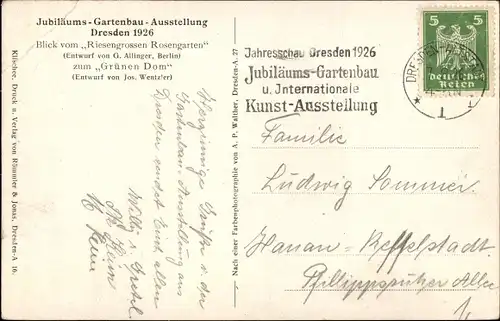 Jubiläums-Gartenbau-Ausstellung
Dresden 1926
Blick vom „Riesengrossen Rosengarten"
(Entwurf von G. Allinger, Berlin)
zum „Grünen Dom"
(Entwurf von Jos. Wentzler)
Klischee, Druck u. Verlag von Römmler & Jonas, Dresden-A 16.
Herzinnige Grüße v. der
Gartenbau-Ausstellung aus
Dresden sendet Euch allen
Willi u. Gretel.
Nach einer Farbenphotographie von A. P. Walther, Dresden-A. 27
Jahresschau Dresden 1926
Jubiläums-Gartenbau
u. Internationale
Kunst-Ausstellung
DRESDEN
1
5 5
Deutsches
Reich
Familie
Ludwig Sommer
Hanau-Kesselstadt
Phillippsruher Allee